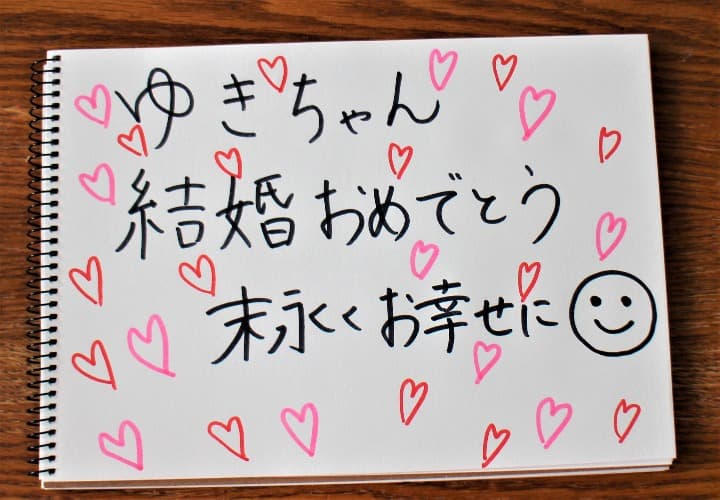 ゆきちゃん
結婚おめでとう
末永くお幸せに